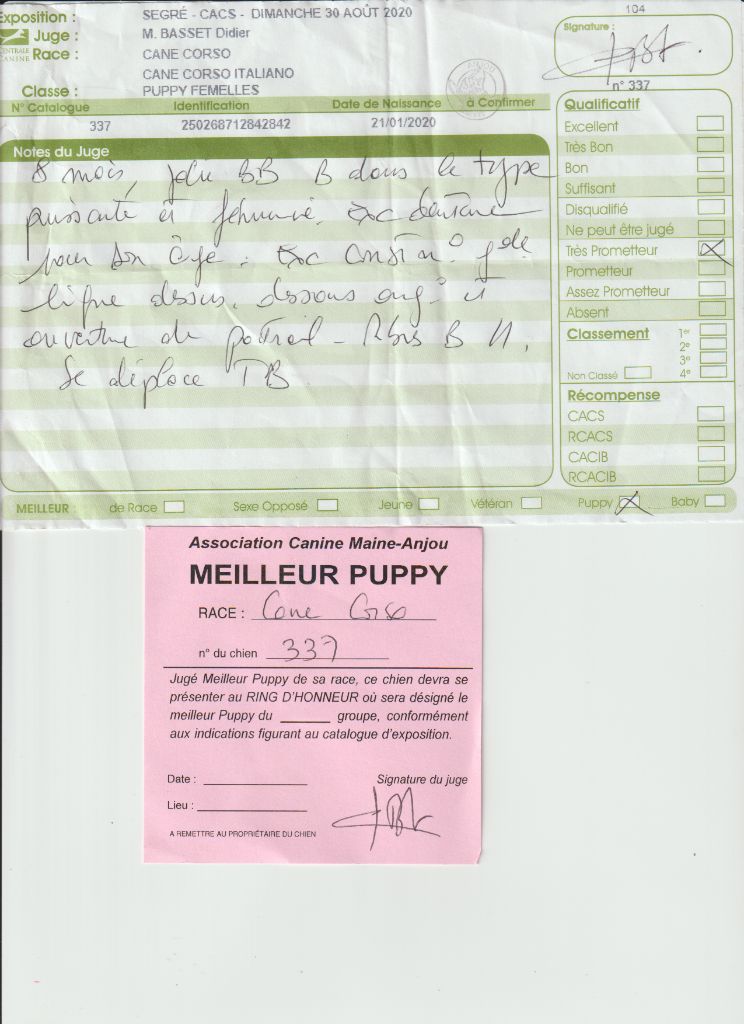 Exposition : SEGRÉ - CACS - DIMANCHE 30 AOÛT 2020
Juge : M. BASSET Didier
CENTRALE CANINE
Race : CANE CORSO
CANE CORSO ITALIANO
Classe : PUPPY FEMELLES
104
Signature :
n° 337
N° Catalogue Identification Date de Naissance à Confirmer
337 250268712842842 21/01/2020
Notes du Juge
8 mois, jolie BB B dans le type
puissante et féminine. Exc denture
pour son âge. Exc
ligne dessus, dessous et
ouverture de poitrail - B
Se déplace TB
Qualificatif
Excellent
Très Bon
Bon
Suffisant
Disqualifié
Ne peut être jugé
Très Prometteur
Prometteur
Assez Prometteur
Absent
Classement 1er
2e
3e
Non Classé 4e
Récompense
CACS
RCACS
CACIB
RCACIB
MEILLEUR : de Race Sexe Opposé Jeune Vétéran Puppy Baby
Association Canine Maine-Anjou
MEILLEUR PUPPY
RACE : Cane Corso
n° du chien 337
Jugé Meilleur Puppy de sa race, ce chien devra se
présenter au RING D'HONNEUR où sera désigné le
meilleur Puppy du ______ groupe, conformément
aux indications figurant au catalogue d'exposition.
Date :
Signature du juge
Lieu :
A REMETTRE AU PROPRIÉTAIRE DU CHIEN